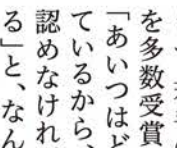 を多数受賞
「あいつはど
ているから、
認めなけれ
る」と、なん